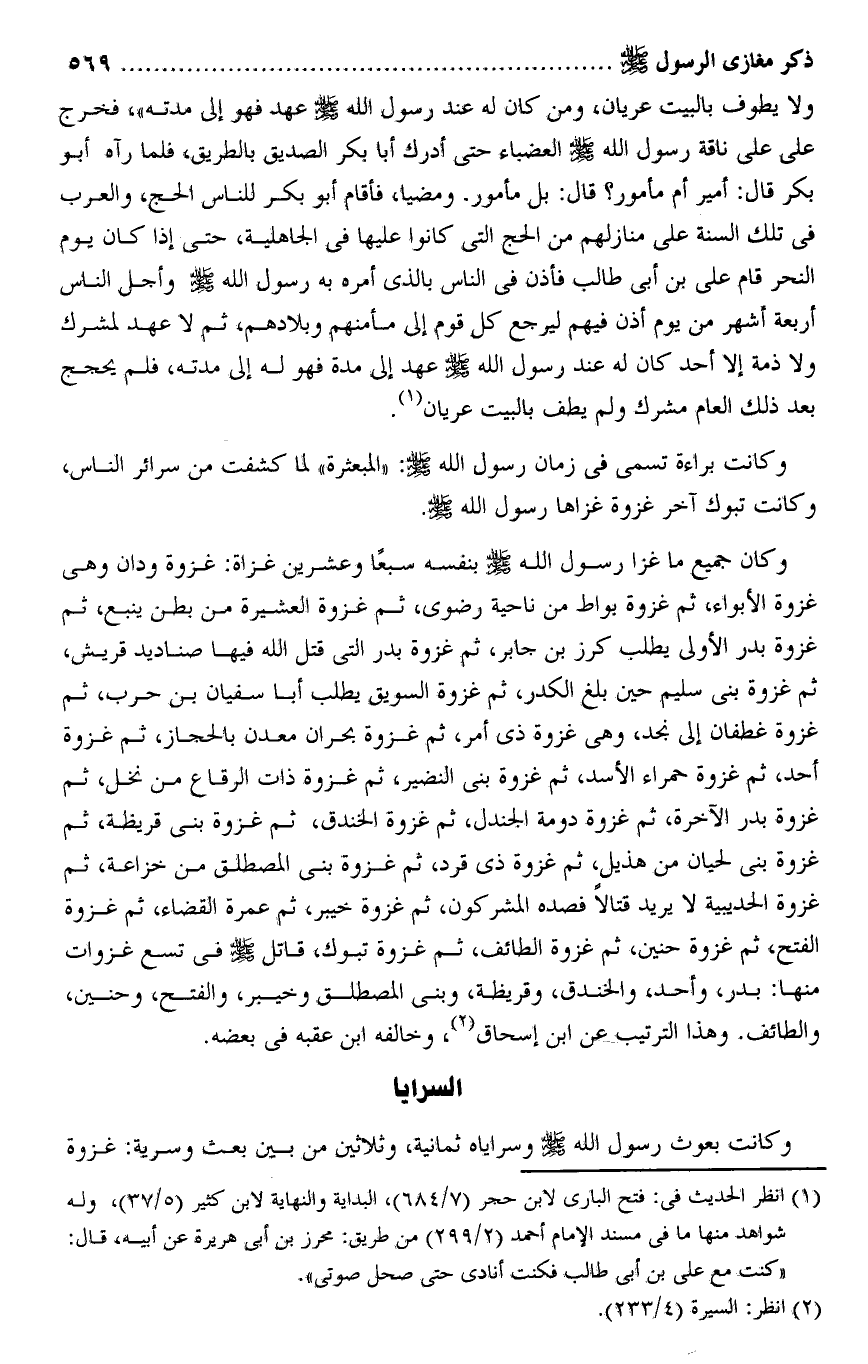 ذكر مغازى الرسول ﷺ ........................................................... ٥٦٩
ولا يطوف بالبيت عريان، ومن كان له عند رسول الله ﷺ عهد فهو إلى مدته»، فخرج
على على ناقة رسول الله ﷺ العضباء حتى أدرك أبا بكر الصديق بالطريق، فلما رآه أبو
بكر قال: أمير أم مأمور؟ قال: بل مأمور. ومضيا، فأقام أبو بكر للناس الحج، والعرب
فى تلك السنة على منازلهم من الحج التى كانوا عليها فى الجاهلية، حتى إذا كان يوم
النحر قام على بن أبى طالب فأذن فى الناس بالذى أمره به رسول الله ﷺ وأجل الناس
أربعة أشهر من يوم أذن فيهم ليرجع كل قوم إلى مأمنهم وبلادهم، ثم لا عهد لمشرك
ولا ذمة إلا أحد كان له عند رسول الله ﷺ عهد إلى مدة فهو له إلى مدته، فلم يحجج
بعد ذلك العام مشرك ولم يطف بالبيت عريان(١).
وكانت براءة تسمى فى زمان رسول الله ﷺ: «المبعثرة» لما كشفت من سرائر الناس،
وكانت تبوك آخر غزوة غزاها رسول الله ﷺ.
وكان جميع ما غزا رسول الله ﷺ بنفسه سبعًا وعشرين غزاة: غزوة ودان وهى
غزوة الأبواء، ثم غزوة بواط من ناحية رضوى، ثم غزوة العشيرة من بطن ينبع، ثم
غزوة بدر الأولى يطلب كرز بن جابر، ثم غزوة بدر التى قتل الله فيها صناديد قريش،
ثم غزوة بنى سليم حين بلغ الكدر، ثم غزوة السويق يطلب أبا سفيان بن حرب، ثم
غزوة غطفان إلى نجد، وهى غزوة ذى أمر، ثم غزوة بحران معدن بالحجاز، ثم غزوة
أحد، ثم غزوة حمراء الأسد، ثم غزوة بنى النضير، ثم غزوة ذات الرقاع من نخل، ثم
غزوة بدر الآخرة، ثم غزوة دومة الجندل، ثم غزوة الخندق، ثم غزوة بنى قريظة، ثم
غزوة بنى لحيان من هذيل، ثم غزوة ذى قرد، ثم غزوة بنى المصطلق من خزاعة، ثم
غزوة الحديبية لا يريد قتالاً فصده المشركون، ثم غزوة خيبر، ثم عمرة القضاء، ثم غزوة
الفتح، ثم غزوة حنين، ثم غزوة الطائف، ثم غزوة تبوك، قاتل ﷺ فى تسع غزوات
منها: بدر، وأحد، والخندق، وقريظة، وبنى المصطلق وخيبر، والفتح، وحنين،
والطائف. وهذا الترتيب عن ابن إسحاق(٢)، وخالفه ابن عقبه فى بعضه.
السرايا
وكانت بعوث رسول الله ﷺ وسراياه ثمانية، وثلاثين من بين بعث وسرية: غزوة
(١) انظر الحديث فى: فتح البارى لابن حجر (٦٨٤/٧)، البداية والنهاية لابن كثير (٣٧/٥)، وله
شواهد منها ما فى مسند الإمام أحمد (٢٩٩/٢) من طريق: محرز بن أبى هريرة عن أبيه، قال:
«كنت مع على بن أبى طالب فكنت أنادى حتى صحل صوتى».
(٢) انظر: السيرة (٢٣٣/٤).